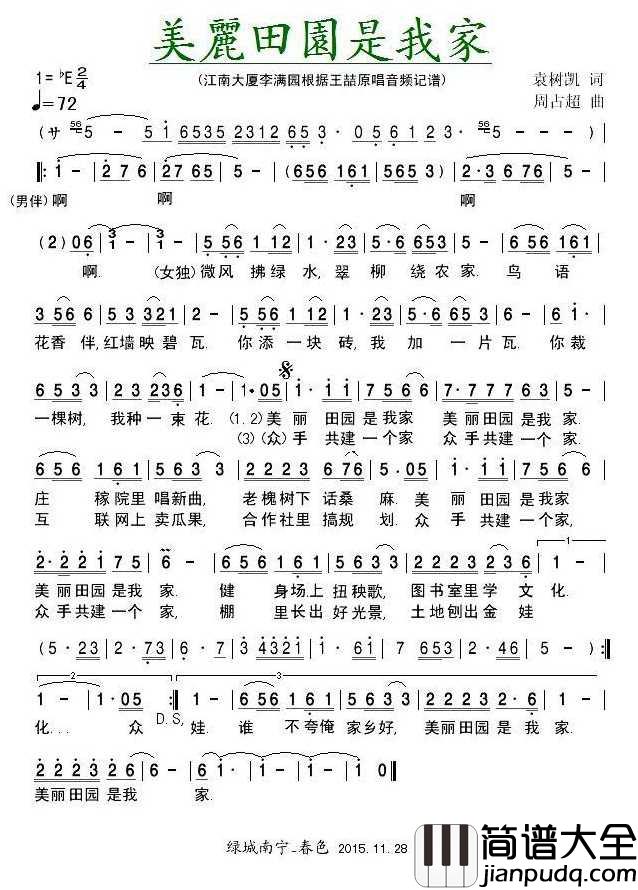 美麗田園是我家
1=♭E 2/4
（江南大厦李满园根据王喆原唱音频记谱）
袁树凯 词
♩=72
周占超 曲
(サ 56 5 - | 5 i 6535 2312 65 3. | 0 5 0 6 56 5 - |
||: 1 - | 2 7 6 | 2 7 6 5 | 5 - | (6 5 6 1 6 1 | 5 6 5 3) | 2·3 6 76 | 5 - |
(男伴)啊 啊 啊
(2) 06 | 1 - | 1 - | 5 56 | 6 0 12 | 1· 23 | 5·6 653 | 5 - | 6 56 161 |
啊. (女独)微风 拂绿 水,翠 柳 绕农 家. 鸟 语
3 56 56 | 53 321 | 2· 5 | 56 1 12 | 1· 23 | 5· 6 | 5 653 | 2· 6 | 6 i· |
花香 伴,红墙映碧瓦. 你添 一块 砖,我 加 一片 瓦.你裁
6 5 3 3 | 5 5 3 | 2 23 6 | 1 - | 1· 05 | 1· 11 | 7 5 6 6 | 7·7 7 7 | 5 6 6 | 5 - |
一棵树, 我种一束花. (1.2)美 丽 田园是我家 美丽田园是我 家.
(3)(众)手 共建一个家 众手共建一个 家.
6 5 6 | 1 6 1 | 5 6 5 3 3 | 2 2 2 3 | 6 76 | 5· 05 | 1· 11 | 7 5 6 6 |
庄 稼院里 唱新曲, 老槐树下 话桑 麻.美 丽 田园是我家
互 联网上 卖瓜果, 合作社里 搞规 划.众 手 共建一个家,
2·2 2 1 | 7 5 | 6 - | 1 2 | 1 6 1 | 5 6 3 3 | 2 2 2 2 | 3 23 6 | 1 - |
美丽田园是我 家. 健 身场上 扭秧歌, 图书室里学 文 化.
众手共建一个 家, 棚 里长出 好光景, 土地刨出金 娃
(5· 23 | 2· 73 | 6· 7 65 | 3 4321 | 1· 61 | 6 5 | 7 653 | 2· 46 | 5 - ) :||
1 - | 1· 05 :|| 1 - | 1 2 | 1 6 1 | 5 6 3 3 | 2 2 2 2 | 3· 5 | 6 - |
化... 众 D.S, 娃.谁 不夸俺 家乡好, 美丽田园 是 我 家.
2 2 2 3 | 2 6 | 6 - | 6 i· | i - | i - | i 0 ||
美丽田园是我 家.
绿城南宁_春色 2015.11.28
简谱大全
jianpudq.com